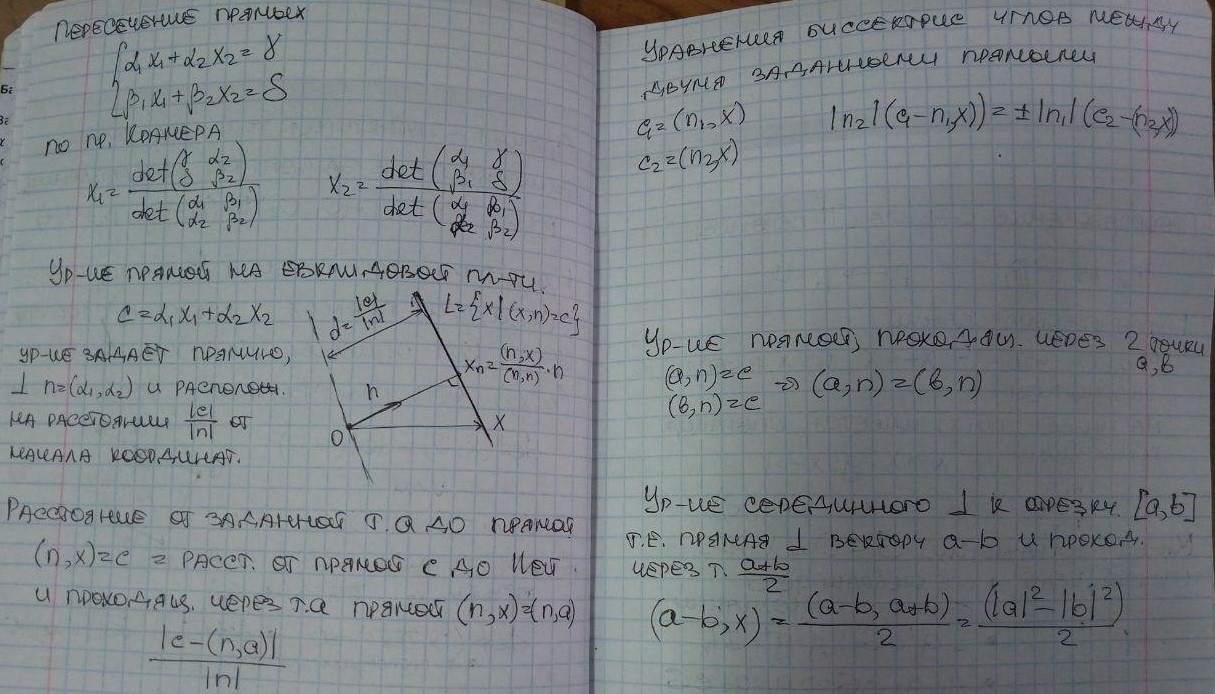 Пересечение прямых
{α₁x₁+α₂x₂=γ
{β₁x₁+β₂x₂=δ
по пр. Крамера
x₁= det(γ α₂ / δ β₂) / det(α₁ β₁ / α₂ β₂)   x₂= det(α₁ γ / β₁ δ) / det(α₁ β₁ / α₂ β₂)
Ур-ие прямой на евклидовой пл-ти.
c=α₁x₁+α₂x₂
ур-ие задаёт прямую,
⊥ n=(α₁,α₂) и располож.
на расстоянии |c|/|n| от
начала координат.
d=|c|/|n|
L={x|(x,n)=c}
xₙ=(n,x)/(n,n)·n
n
O
x
Расстояние от заданной т. a до прямой
(n,x)=c = расст. от прямой с до ||ей
и проходящ. через т.a прямой (n,x)=(n,a)
|c-(n,a)|/|n|
Уравнения биссектрис углов между
двумя заданными прямыми
c₁=(n₁,x)   |n₂|(c₁-n₁,x))=±|n₁|(c₂-(n₂,x))
c₂=(n₂,x)
Ур-ие прямой, проходящ. через 2 точки
a,b
(a,n)=c
(b,n)=c ⇒ (a,n)=(b,n)
Ур-ие серединного ⊥ к отрезку [a,b]
т.е. прямая ⊥ вектору a-b и проход.
через т. a+b/2
(a-b,x)= (a-b, a+b)/2 = (|a|²-|b|²)/2